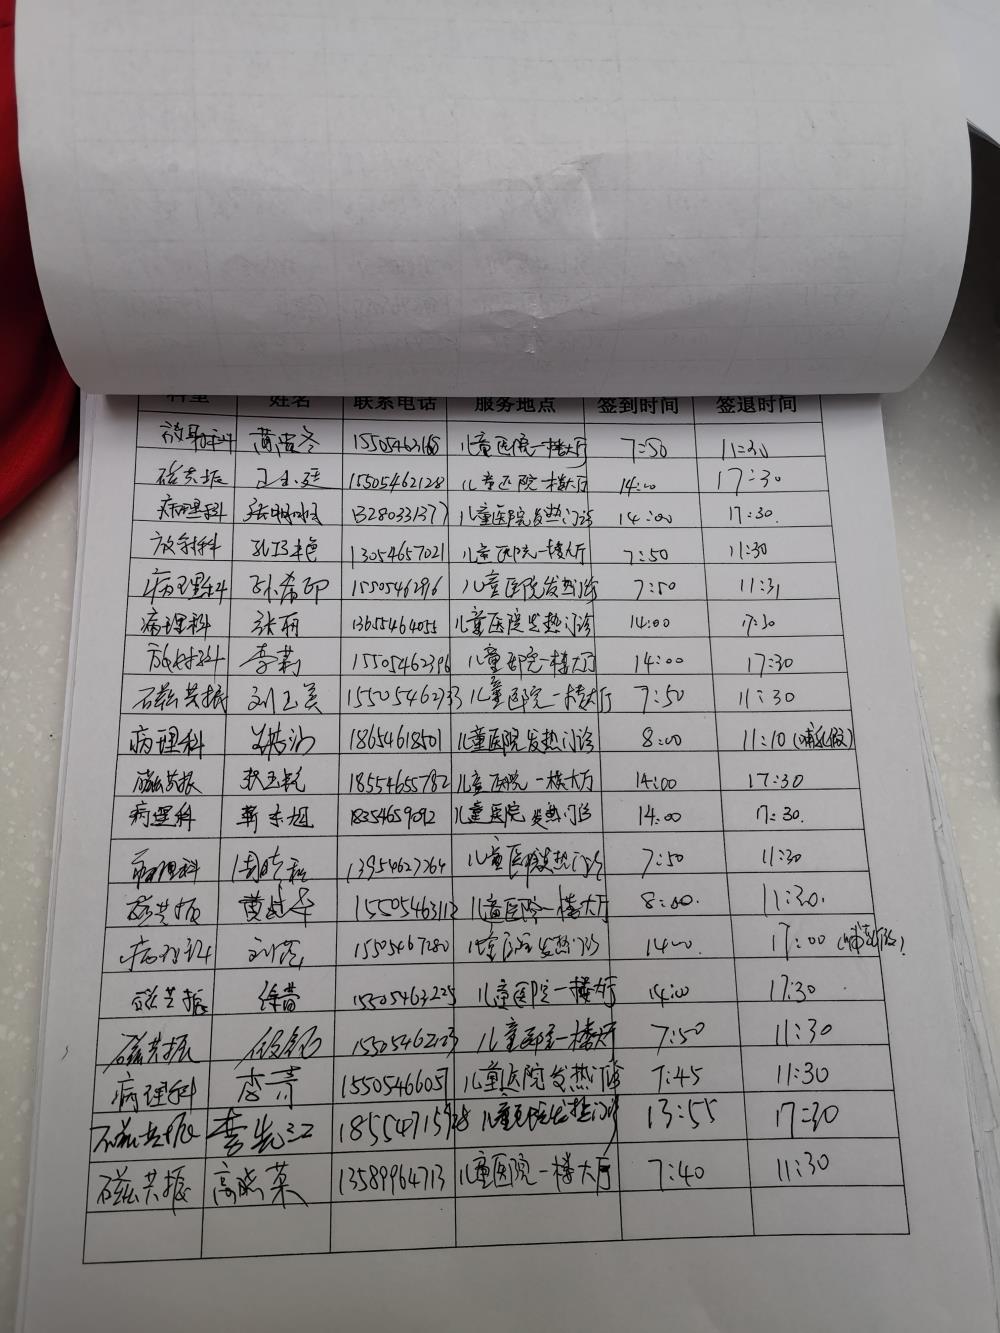 科室 姓名 联系电话 服务地点 签到时间 签退时间
放射科 15505463168 儿童医院一楼大厅 7:50 11:30
磁共振 15505462128 儿童医院一楼大厅 14:00 17:30
病理科 13280331377 儿童医院发热门诊 14:00 17:30.
放射科 13054657021 儿童医院一楼大厅 7:50 11:30
病理科 孙希印 儿童医院发热门诊 7:50 11:31
病理科 张丽 13655464055 儿童医院发热门诊 14:00 17:30
放射科 李莉 15505462396 儿童医院一楼大厅 14:00 17:30
磁共振 刘玉美 15505462733 儿童医院一楼大厅 7:50 11:30
病理科 18654618501 儿童医院发热门诊 8:00 11:10(哺乳假)
磁共振 18554655782 儿童医院一楼大厅 14:00 17:30
病理科 18354659092 儿童医院发热门诊 14:00 17:30.
病理科 13954627264 儿童医院发热门诊 7:50 11:30
磁共振 15505463112 儿童医院一楼大厅 8:00. 11:30.
病理科 15505467280 儿童医院发热门诊 14:00. 17:00(哺乳假)
磁共振 徐蕾 15505463225 儿童医院一楼大厅 14:00 17:30
磁共振 15505462123 儿童医院一楼大厅 7:50 11:30
病理科 1550546605 儿童医院发热门诊 7:45 11:30
磁共振 李先江 儿童医院发热门诊 13:55 17:30
磁共振 高晓菜 13589964713 儿童医院一楼大厅 7:40 11:30